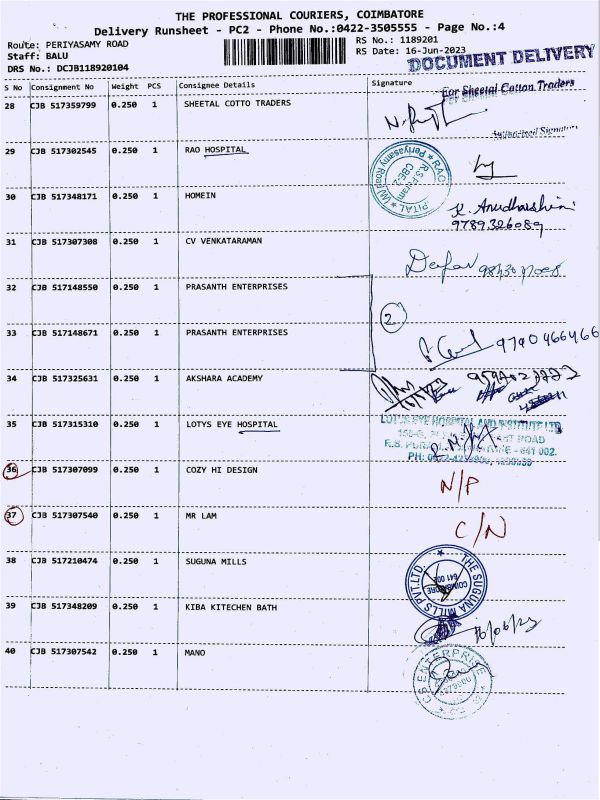 THE PROFESSIONAL COURIERS, COIMBATORE
Delivery Runsheet - PC2 - Phone No.:0422-3505555 - Page No.:4
Route: PERIYASAMY ROAD
Staff: BALU
DRS No.: DCJB118920104
RS No.: 1189201
RS Date: 16-Jun-2023
DOCUMENT DELIVERY
S No Consignment No Weight PCS Consignee Details Signature
28 CJB 517359799 0.250 1 SHEETAL COTTO TRADERS
For Sheetal Cotton Traders
Authorised Signatory
29 CJB 517302545 0.250 1 RAO HOSPITAL
30 CJB 517348171 0.250 1 HOMEIN
K. Anudharshini
9789326089
31 CJB 517307308 0.250 1 CV VENKATARAMAN
32 CJB 517148550 0.250 1 PRASANTH ENTERPRISES
2
33 CJB 517148671 0.250 1 PRASANTH ENTERPRISES
9790466466
34 CJB 517325631 0.250 1 AKSHARA ACADEMY
35 CJB 517315310 0.250 1 LOTYS EYE HOSPITAL
LOTUS EYE HOSPITAL AND INSTITUTE LTD
36 CJB 517307099 0.250 1 COZY HI DESIGN
N/P
37 CJB 517307540 0.250 1 MR LAM
C/N
38 CJB 517210474 0.250 1 SUGUNA MILLS
THE SUGUNA MILLS PVT. LTD.
COIMBATORE
641 002
39 CJB 517348209 0.250 1 KIBA KITECHEN BATH
16/06/23
40 CJB 517307542 0.250 1 MANO